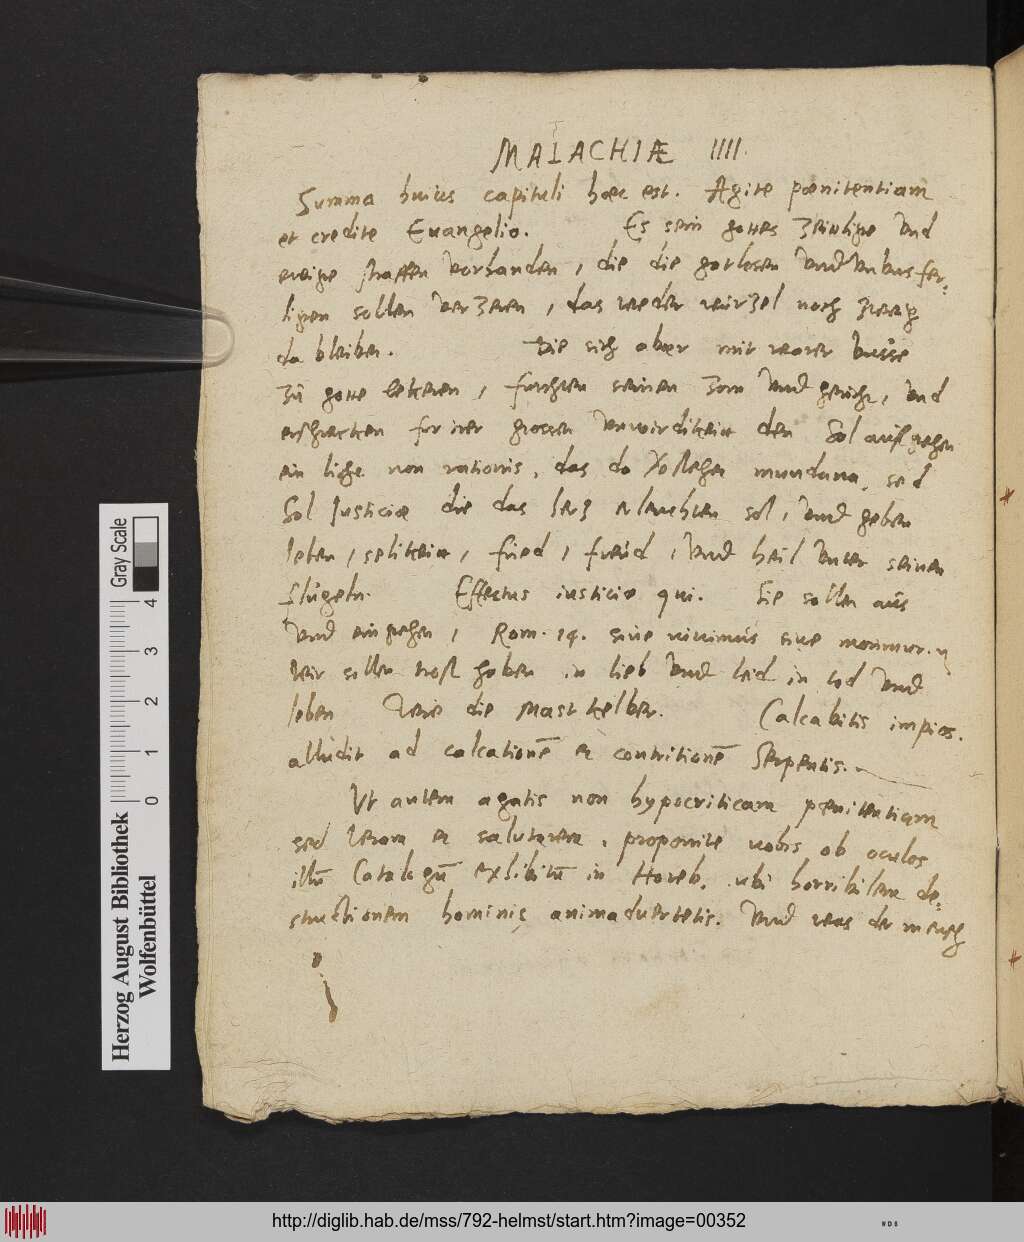 MALACHIÆ IIII.
Summa huius capituli hæc est. Agite pœnitentiam
et credite Euangelio. Es sein gottes zeitlige vnd
ewige straffen vorhanden, die die gotlosen vnd vnbusfer-
tigen sollen verzeren, das weder wurzel noch zweig
da bleibe. Die sich aber mit warer busse
zu gotte bekeren, furchten seinen zorn vnd gericht, vnd
erschrecken fur irer grossen vnwirdikeit den sol auffgehen
ein licht non rationis, das da mundana, sed
Sol Justiciæ die das herz erleuchten sol, vnd geben
leben, selikeit, fried, freud, vnd heil vnter seinen
flugeln. Effectus iusticiæ qui. Sie sollen aus
vnd eingehen, Rom. 14. siue viuimus siue morimur.
Wir sollen trost haben in lieb vnd leid in tod vnd
leben Wie die Mastkelber. Calcabitis impios.
alludit ad calcationē et contritionē Serpentis.
Vt autem agatis non hypocriticam pœnitentiam
sed veram et salutarem, proponite vobis ob oculos
illū Catalogū exhibitū in Horeb, vbi horribilem de-
structionem hominis animaduertetis. Vnd was der mensch
Herzog August Bibliothek
Wolfenbüttel
Gray Scale
0 1 2 3 4
http://diglib.hab.de/mss/792-helmst/start.htm?image=00352